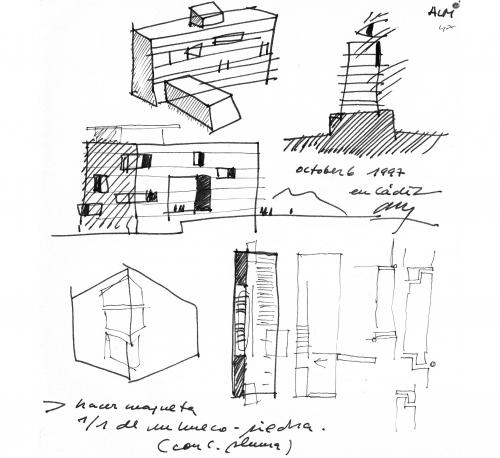 ALM
october 6 1997
en Cádiz
> hacer maqueta
1/1 de un hueco-piedra.
(con C. pluma)